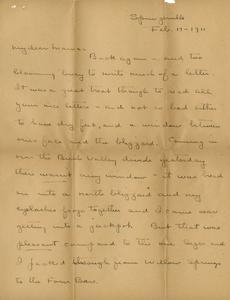 Springerville
Feb. 17 - 1911
My dear Mama:
Back again - and too
blooming busy to write much of a letter.
It was a great treat though to read all
your nice letters - and not so bad either
to have dry feet, and a window between
one's face and the blizzard. Coming in
over the Bush Valley divide yesterday
there wasn't any window - it was head
on into a north blizzard and my
eyelashes froze together and I came near
getting into a jackpot. But that was
pleasant compared to the time
I packed through from Willow Springs
to the Four Bar.